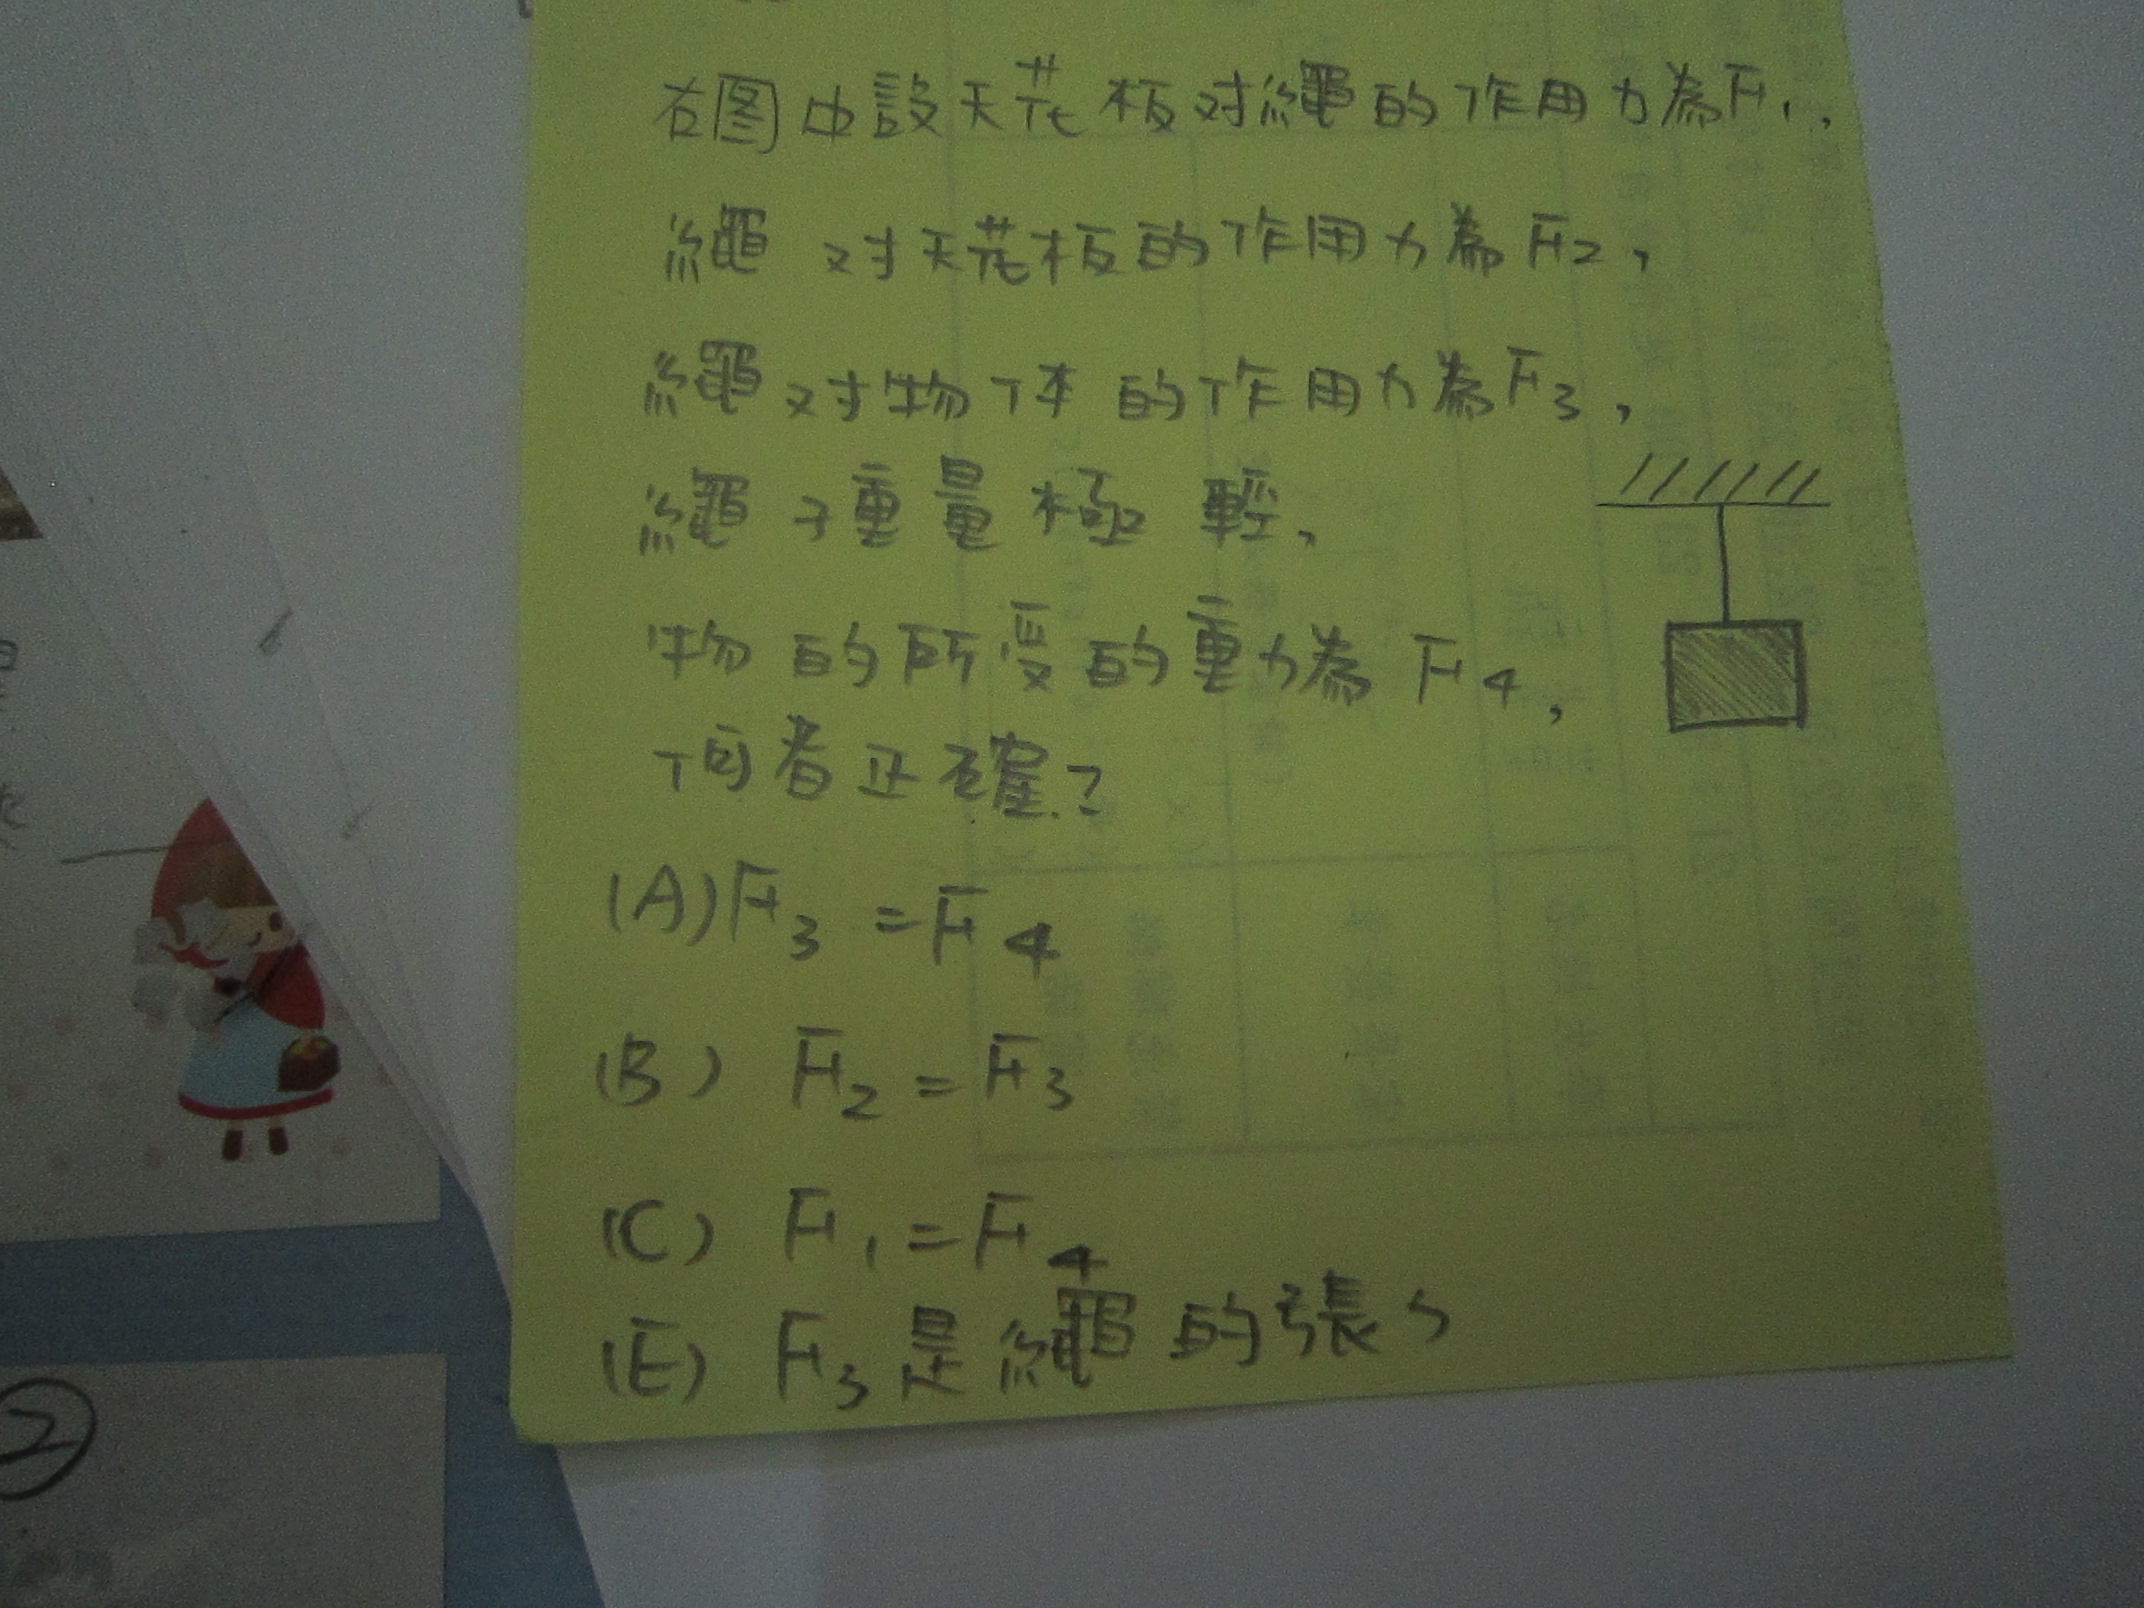 右图中設天花板对繩的作用力為F1,
繩对天花板的作用力為F2,
繩对物体的作用力為F3,
繩子重量極輕,
物的所受的重力為F4,
何者正確?
(A) F3 = F4
(B) F2 = F3
(C) F1 = F4
(E) F3是繩的張力
2